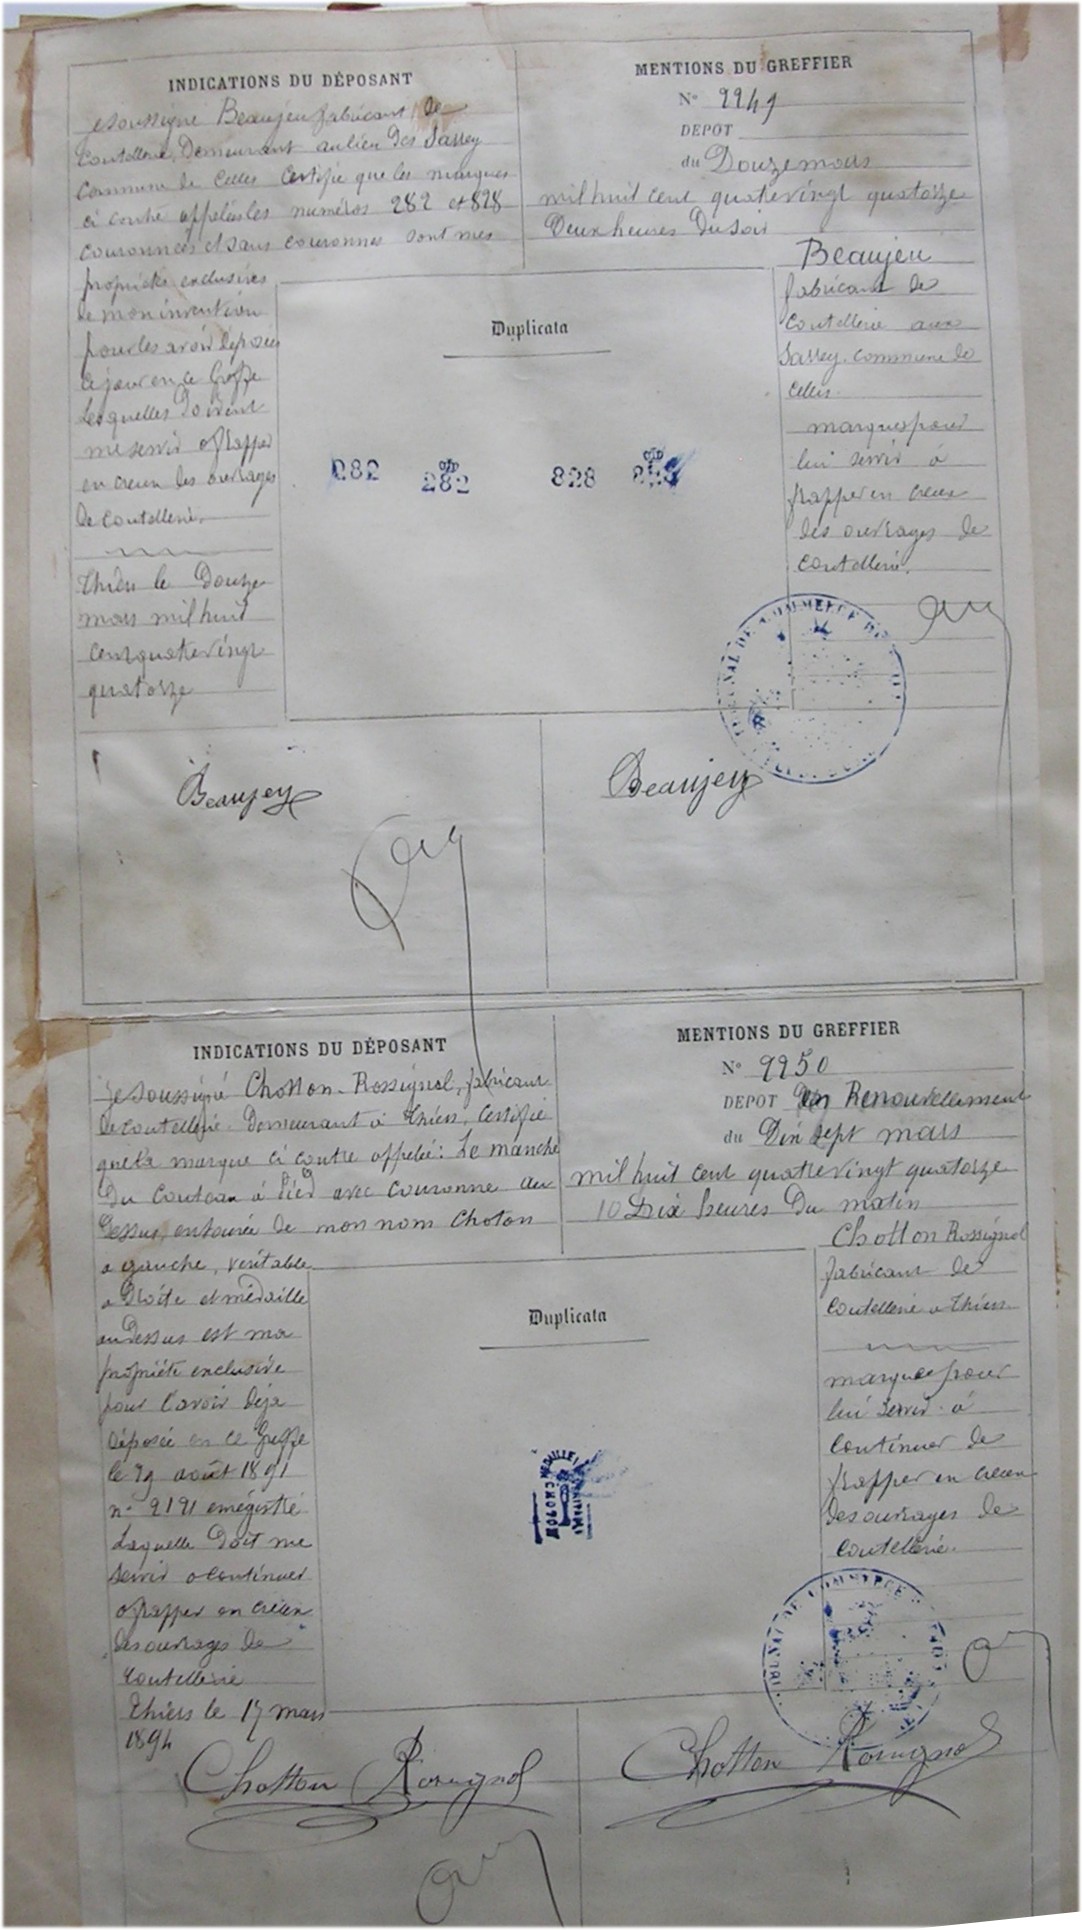 INDICATIONS DU DÉPOSANT
Je soussigné Beaujeu fabricant de
Coutellerie, Demeurant au lieu des Sarrey
Commune de Celles Certifie que les marques
ci contre appelées les numéros 282 et 828
couronnées et sans couronnes sont mes
propriétés exclusives
de mon invention
pour les avoir déposées
ce jour en ce Greffe
Lesquelles Doivent
me servir a frapper
en creux les ouvrages
de coutellerie.
Thiers le Douze
mars mil huit
cent quatrevingt
quatorze
MENTIONS DU GREFFIER
N° 2249
DEPOT
du Douze mars
mil huit cent quatrevingt quatorze
Deux heures Du soir
Beaujeu
fabricant de
Coutellerie aux
Sarrey. commune de
Celles.
marques pour
lui servir à
frapper en creux
des ouvrages de
coutellerie.
Duplicata
282 282 828 828
TRIBUNAL DE COMMERCE DE
Beaujeu
Beaujeu
INDICATIONS DU DÉPOSANT
Je soussigné Chotton-Rossignol, fabricant
de coutellerie. Demeurant à Thiers, Certifie
que la marque ci contre appelée: Le manche
Du Couteau à Pied avec couronne au
Dessus, entourée de mon nom Choton
a gauche, véritable
a Droite et médaille
au Dessus est ma
propriété exclusive
pour l'avoir déjà
déposée en ce Greffe
le 29 août 1891
n° 2191 enregistré
Laquelle Doit me
servir a continuer
a frapper en creux
des ouvrages de
Coutellerie
Thiers le 17 mars
1894
MENTIONS DU GREFFIER
N° 2250
DEPOT en Renouvellement
du Dix sept mars
mil huit cent quatrevingt quatorze
10 Dix heures Du matin
Chotton Rossignol
fabricant de
Coutellerie a Thiers
marque pour
lui servir à
continuer de
frapper en creux
des ouvrages de
coutellerie.
Duplicata
MEDAILLE
CHOTON
TRIBUNAL DE COMMERCE
Chotton Rossignol
Chotton Rossignol